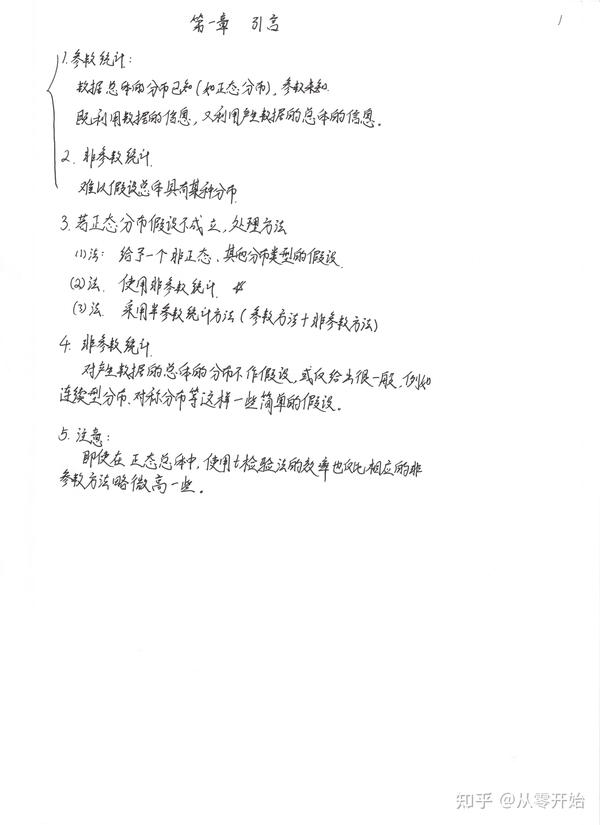 第一章 引言
1
1.参数统计:
数据总体的分布已知(如正态分布),参数未知.
既利用数据的信息,又利用产生数据的总体的信息。
2. 非参数统计.
难以假设总体具有某种分布.
3. 若正态分布假设不成立,处理方法
(1)法: 给予一个非正态、其他分布类型的假设.
(2)法. 使用非参数统计.
(3)法. 采用半参数统计方法(参数方法+非参数方法)
4. 非参数统计.
对产生数据的总体的分布不作假设,或仅给出很一般,例如
连续型分布、对称分布等这样一些简单的假设。
5. 注意:
即使在正态总体中,使用t检验法的效率也仅比相应的非
参数方法略微高一些。
知乎 @从零开始